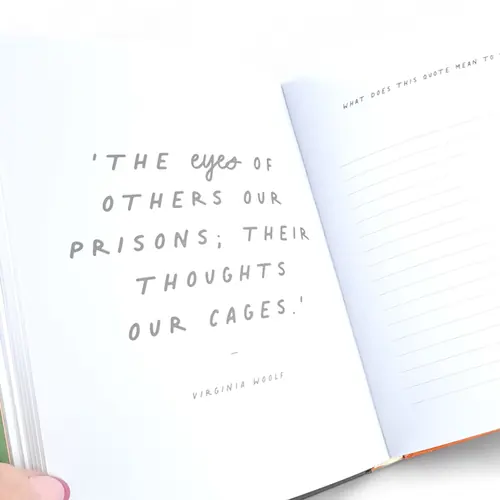 'THE eyes OF
OTHERS OUR
PRISONS; THEIR
THOUGHTS
OUR CAGES.'
–
VIRGINIA WOOLF
WHAT DOES THIS QUOTE MEAN TO